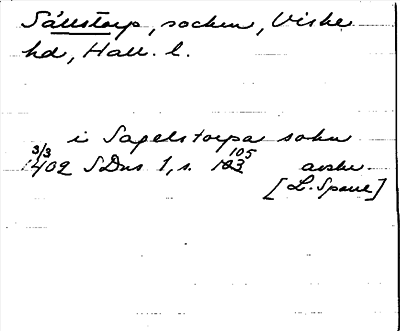 Sällstorp, socken, Viske
hd, Hall. l.
i Sagelstorpa sokn
3/3 105
1402 SDns 1, s. 123 avskr.
[L. Sparre]